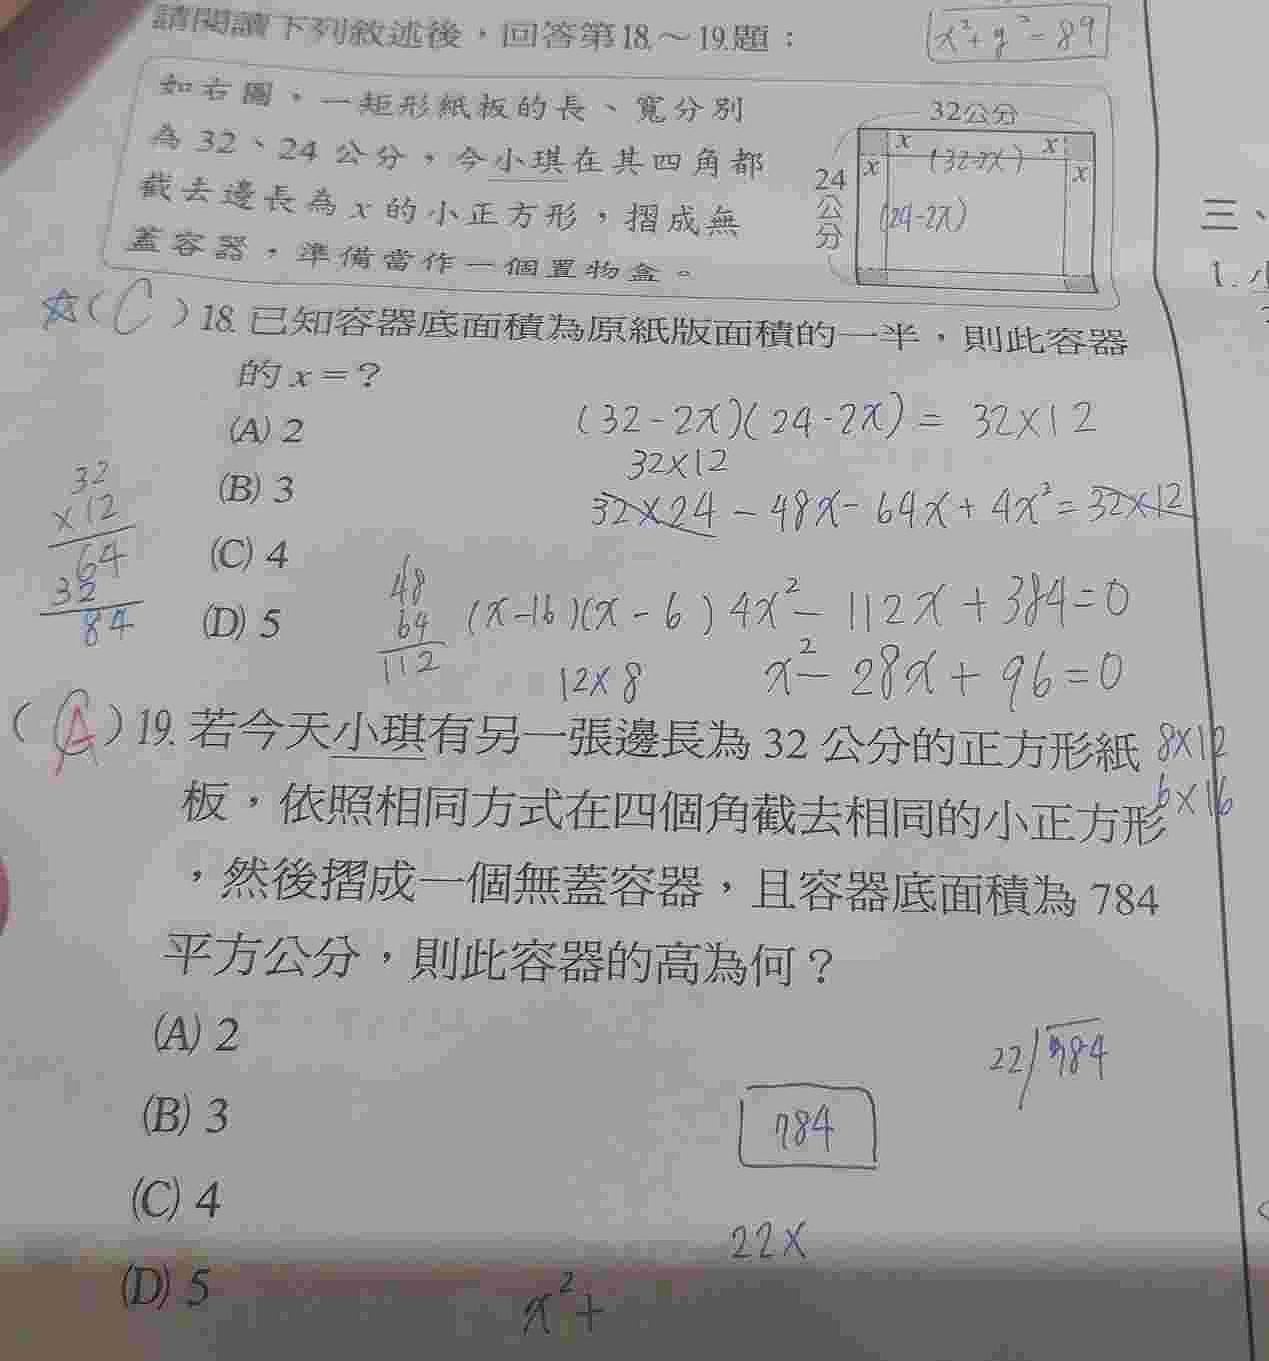 請閱讀下列敘述後，回答第18.～19.題：
x²+y²=89
如右圖，一矩形紙板的長、寬分別
為 32、24 公分，今小琪在其四角都
截去邊長為 x 的小正方形，摺成無
蓋容器，準備當作一個置物盒。
32公分
x x
x (32-2x) x
24公分
(24-2x)
三、
1. 小
☆(C)18. 已知容器底面積為原紙版面積的一半，則此容器
的 x=？
(A) 2
(32-2x)(24-2x)=32×12
32×12
(B) 3
32×24-48x-64x+4x²=32×12
32
×12
64
32
84
(C) 4
(D) 5
48
64
112
(x-16)(x-6) 4x²-112x+384=0
12×8
x²-28x+96=0
(A)19. 若今天小琪有另一張邊長為 32 公分的正方形紙
8×12
板，依照相同方式在四個角截去相同的小正方形
6×16
，然後摺成一個無蓋容器，且容器底面積為 784
平方公分，則此容器的高為何？
(A) 2
22 784
(B) 3
784
(C) 4
22x
(D) 5
x²+